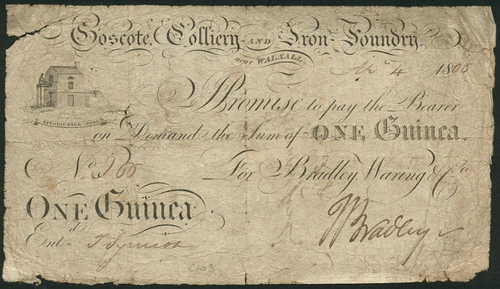 Goscote, Colliery AND Iron-Foundry.
near WALSALL
4 1800
I Promise to pay the Bearer
on Demand the Sum of ONE Guinea.
No
For Bradley Waring & Co
ONE Guinea
J Bradley
Entd